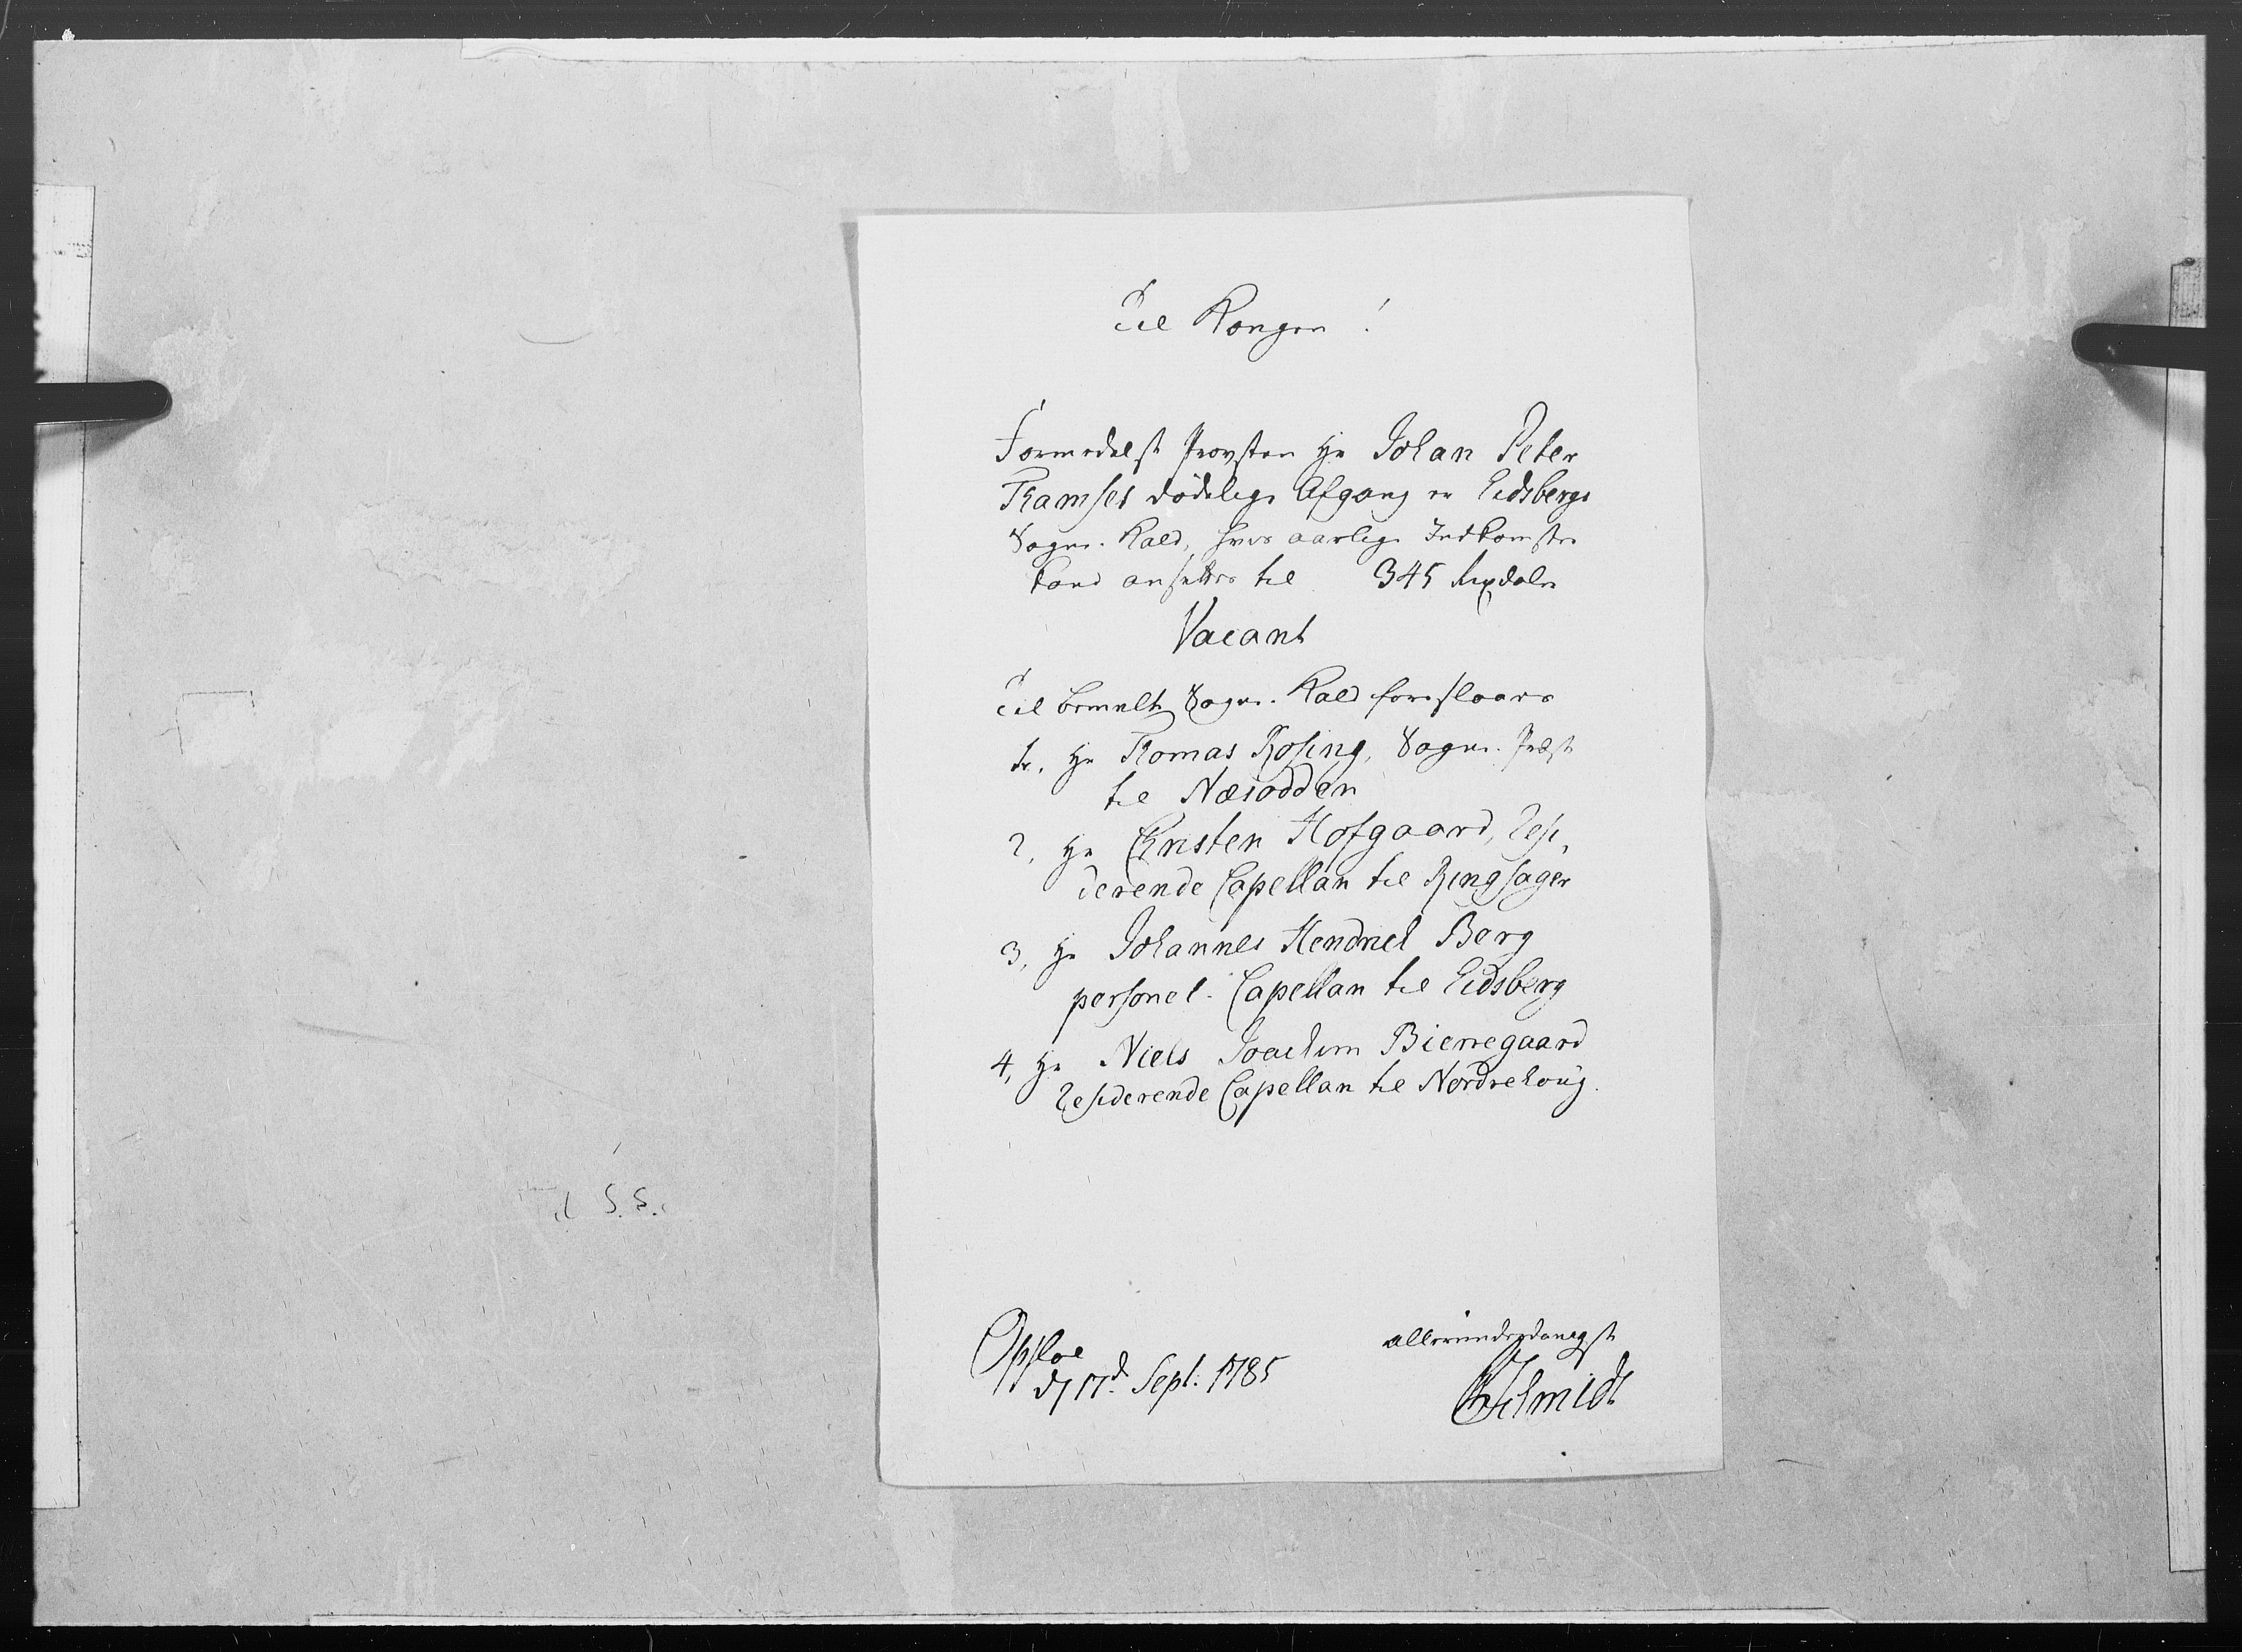 Til Kongen!
Formedelst Provsten Hr Johan Peter
Thamses dødelige Afgang er Eidsbergs
Sogne-Kald, hvis aarlige Indkomster
kand ansættes til 345 Rixdaler
Vacant
Til bemelte Sogne-Kald foreslaaes
1. Hr Thomas Rosing, Sogne-Præst
til Næsodden
2, Hr Christen Hofgaard, Resi,
derende Capellan til Ringsager
3, Hr Johannes Hendrich Berg
personel-Capellan til Eidsberg
4, Hr Niels Joachim Bierregaard
Residerende Capellan til Nordrehoug.
Opsloe
allerunderdanigst
d 17d. Sept. 1785
Schmidt